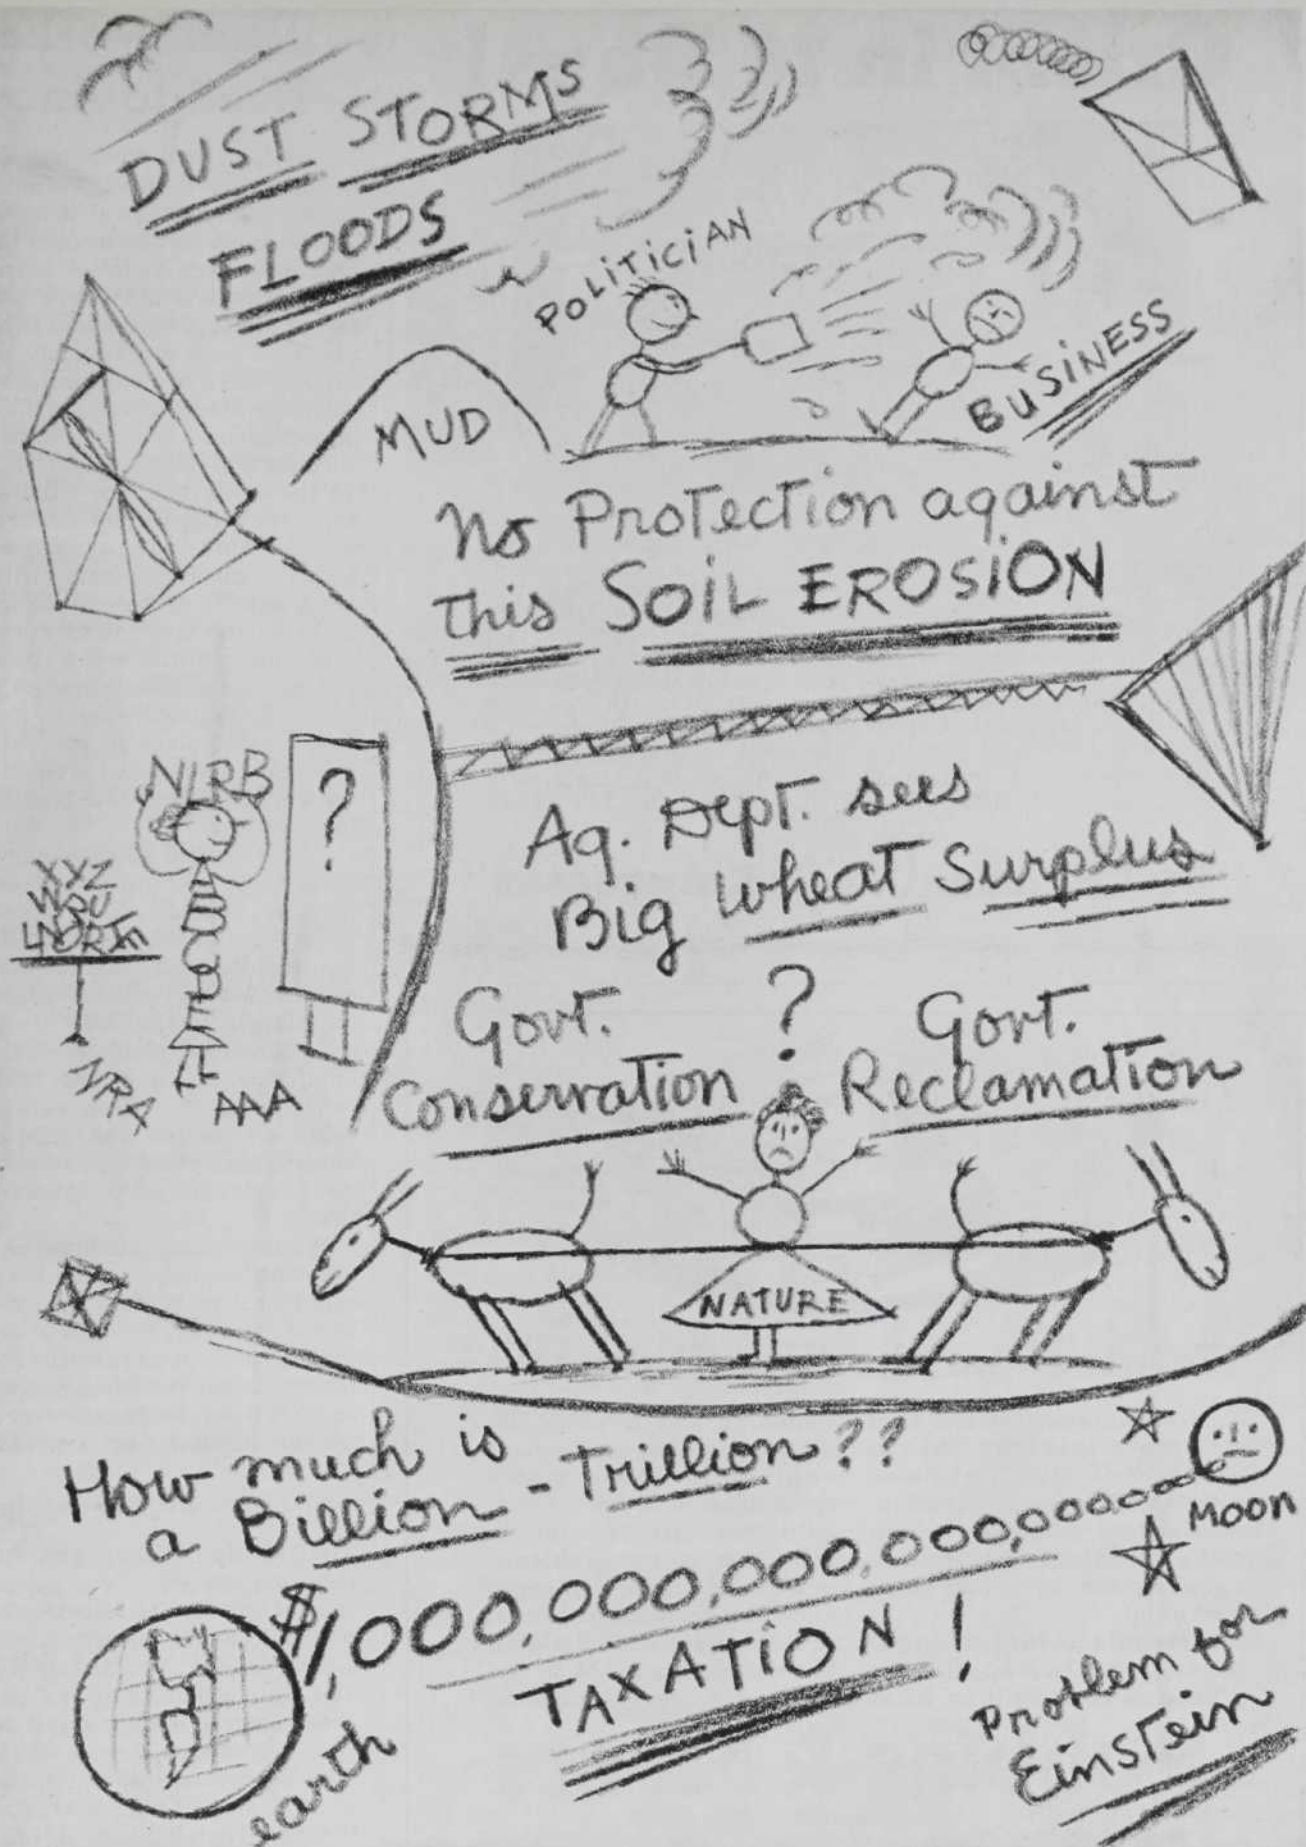 DUST STORMS
FLOODS
POLITICIAN
BUSINESS
MUD
No Protection against
this SOIL EROSION
NLRB
?
XYZ
WPU
ABCDEF
NRA
AAA
Ag. Dept. sees
Big Wheat Surplus
?
Govt.
Conservation
Govt.
Reclamation
NATURE
How much is
a Billion - Trillion??
$1,000,000,000,000,000,000000000
Moon
TAXATION!
earth
Problem for
Einstein